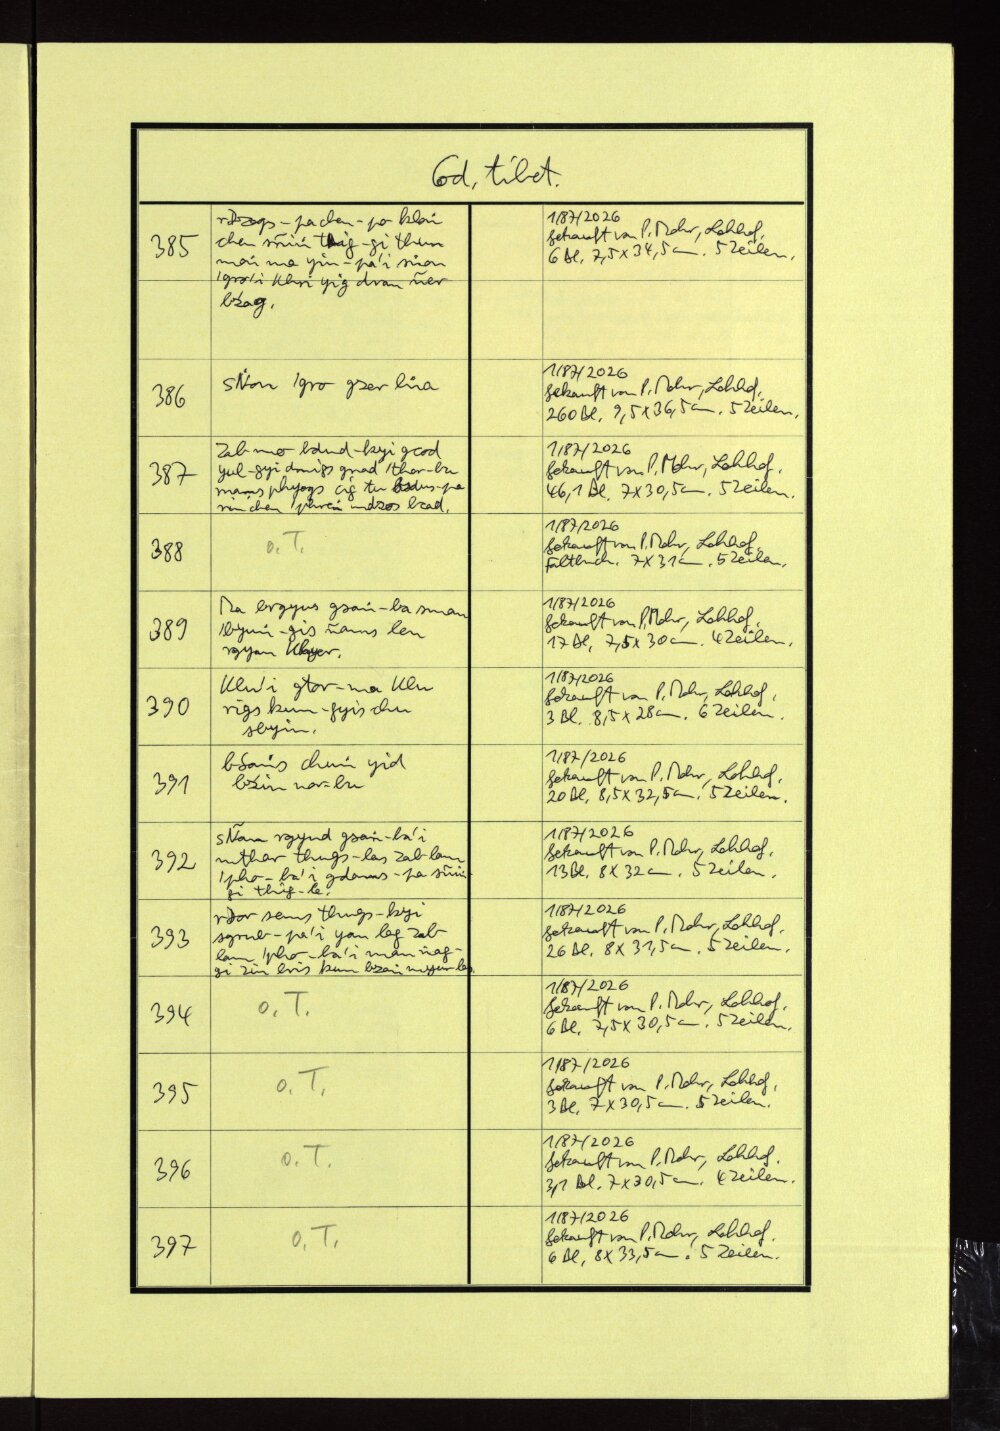 Cod. tibet.
385
rDzogs-pa chen-po kloṅ
chen sñiṅ thig-gi thun
moṅ ma yin-pa'i sṅon
'gro'i khri yig dran ñer
bźag.
1/87/2026
Gekauft von P. Mohr, Lohhof.
6 Bl. 7,5 x 34,5 cm. 5 Zeilen.
386
sṄon 'gro gser liṅa
1/87/2026
Gekauft von P. Mohr, Lohhof.
260 Bl. 9,5 x 36,5 cm. 5 Zeilen.
387
Zab-mo bdud-kyi gcod
yul-gyi dmigs gnad 'thor-bu
rnams phyogs cig tu bsdus-pa
rin chen phreṅ mdzes bkod.
1/87/2026
Gekauft von P. Mohr, Lohhof.
46,1 Bl. 7 x 30,5 cm. 5 Zeilen.
388
o. T.
1/87/2026
Gekauft von P. Mohr, Lohhof.
Faltbuch. 7 x 31 cm. 5 Zeilen.
389
Ma brgyus gsaṅ-ba sman
'byuṅ-gis ñams len
rgyun khyer.
1/87/2026
Gekauft von P. Mohr, Lohhof.
17 Bl. 7,5 x 30 cm. 4 Zeilen.
390
Klu'i gtor-ma klu
rigs kun-gyis chu
sbyin.
1/87/2026
Gekauft von P. Mohr, Lohhof.
3 Bl. 8,5 x 28 cm. 6 Zeilen.
391
bSaṅs chuṅ yid
bźin nor-bu
1/87/2026
Gekauft von P. Mohr, Lohhof.
20 Bl. 8,5 x 32,5 cm. 5 Zeilen.
392
sÑan rgyud gsaṅ-ba'i
mthar thugs-las zab lam
'pho-ba'i gdams-pa sñiṅ
gi thig-le.
1/87/2026
Gekauft von P. Mohr, Lohhof.
13 Bl. 8 x 32 cm. 5 Zeilen.
393
rDor sems thugs-kyi
sgrub-pa'i yan lag zab
lam 'pho-ba'i man ṅag-
gi zin bris kun bzaṅ myur lam
1/87/2026
Gekauft von P. Mohr, Lohhof.
26 Bl. 8 x 31,5 cm. 5 Zeilen.
394
o. T.
1/87/2026
Gekauft von P. Mohr, Lohhof.
6 Bl. 7,5 x 30,5 cm. 5 Zeilen.
395
o. T.
1/87/2026
Gekauft von P. Mohr, Lohhof.
3 Bl. 7 x 30,5 cm. 5 Zeilen.
396
o. T.
1/87/2026
Gekauft von P. Mohr, Lohhof.
3,1 Bl. 7 x 30,5 cm. 4 Zeilen.
397
o. T.
1/87/2026
Gekauft von P. Mohr, Lohhof.
6 Bl. 8 x 33,5 cm. 5 Zeilen.